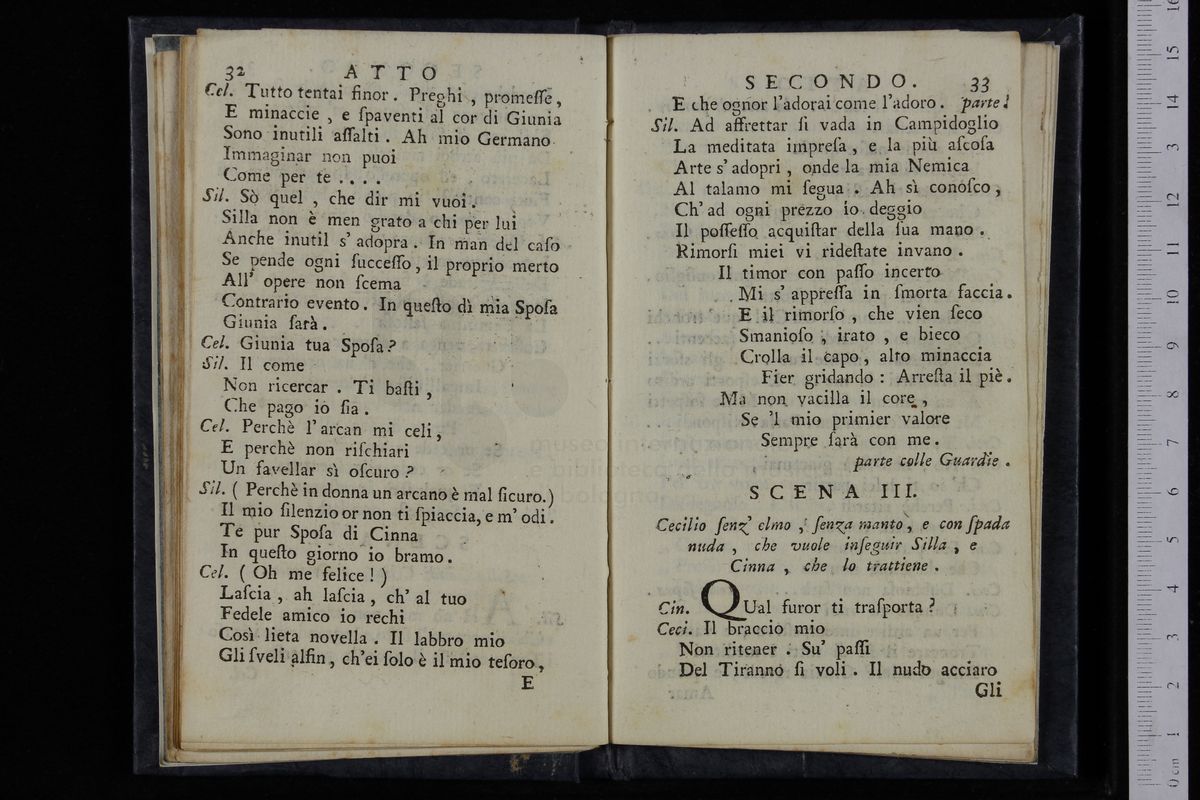 32 ATTO
Cel. Tutto tentai finor. Preghi, promeſſe,
E minaccie, e ſpaventi al cor di Giunia
Sono inutili aſſalti. Ah mio Germano
Immaginar non puoi
Come per te ....
Sil. Sò quel, che dir mi vuoi.
Silla non è men grato a chi per lui
Anche inutil s' adopra. In man del caſo
Se pende ogni ſucceſſo, il proprio merto
All' opere non ſcema
Contrario evento. In queſto dì mia Spoſa
Giunia ſarà.
Cel. Giunia tua Spoſa?
Sil. Il come
Non ricercar. Ti baſti,
Che pago io ſia.
Cel. Perchè l'arcan mi celi,
E perchè non riſchiari
Un favellar sì oſcuro?
Sil. (Perchè in donna un arcano è mal ſicuro.)
Il mio ſilenzio or non ti ſpiaccia, e m' odi.
Te pur Spoſa di Cinna
In queſto giorno io bramo.
Cel. (Oh me felice!)
Laſcia, ah laſcia, ch' al tuo
Fedele amico io rechi
Così lieta novella. Il labbro mio
Gli ſveli alfin, ch'ei ſolo è il mio teſoro,
E
SECONDO. 33
E che ognor l'adorai come l'adoro. parte.
Sil. Ad affrettar ſi vada in Campidoglio
La meditata impreſa, e la più aſcoſa
Arte s' adopri, onde la mia Nemica
Al talamo mi ſegua. Ah sì conoſco,
Ch' ad ogni prezzo io deggio
Il poſſeſſo acquiſtar della ſua mano.
Rimorſi miei vi rideſtate invano.
Il timor con paſſo incerto
Mi s' appreſſa in ſmorta faccia.
E il rimorſo, che vien ſeco
Smanioſo, irato, e bieco
Crolla il capo, alto minaccia
Fier gridando: Arreſta il piè.
Ma non vacilla il core,
Se 'l mio primier valore
Sempre ſarà con me.
parte colle Guardie.
SCENA III.
Cecilio ſenz' elmo, ſenza manto, e con ſpada
nuda, che vuole inſeguir Silla, e
Cinna, che lo trattiene.
Cin. QUal furor ti traſporta?
Ceci. Il braccio mio
Non ritener. Su' paſſi
Del Tiranno ſi voli. Il nudo acciaro
Gli